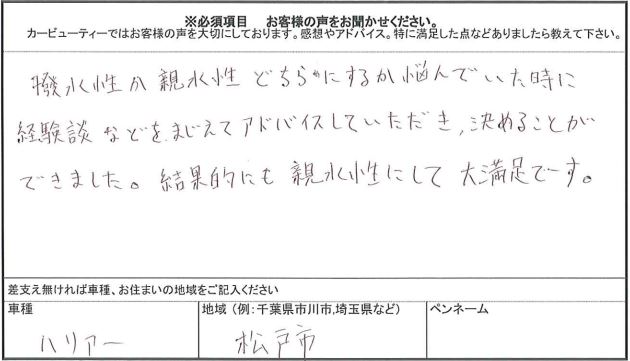 ※必須項目　お客様の声をお聞かせください。
カービューティーではお客様の声を大切にしております。感想やアドバイス。特に満足した点などありましたら教えて下さい。
撥水性か親水性どちらかにするか悩んでいた時に
経験談などをまじえてアドバイスしていただき、決めることが
できました。結果的にも親水性にして大満足です。
差支え無ければ車種、お住まいの地域をご記入ください
車種
地域（例：千葉県市川市,埼玉県など）
ペンネーム
ハリアー
松戸市